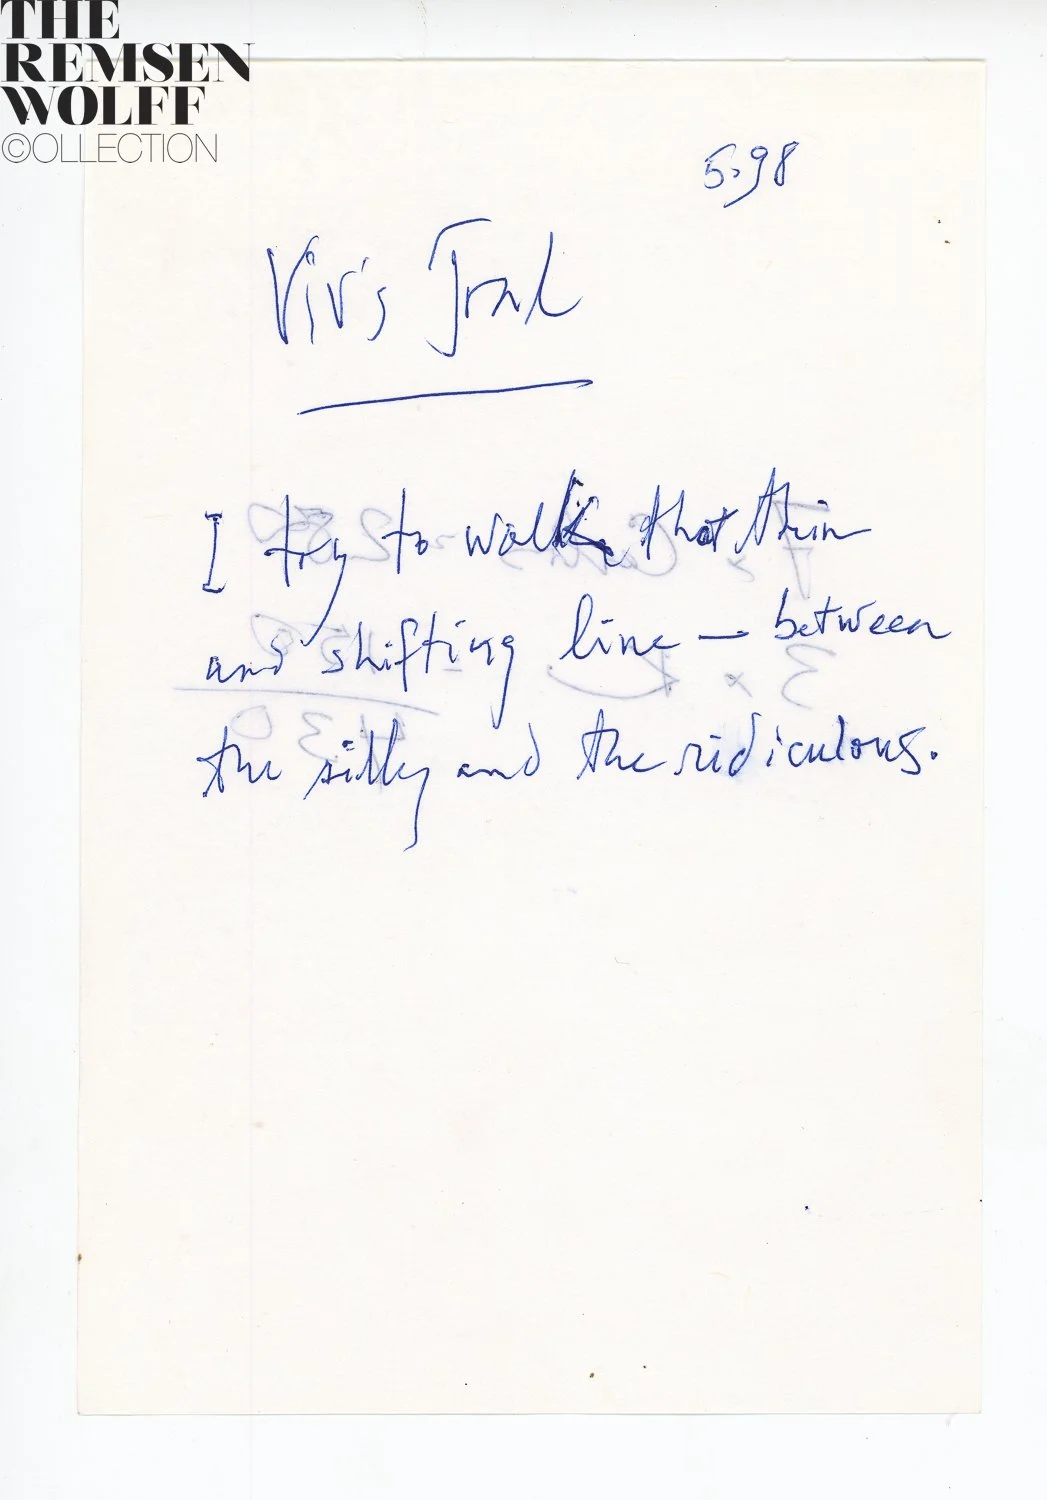 THE
REMSEN
WOLFF
©OLLECTION
5.98
Viv's Jrnl
I try to walk that thin
and shifting line — between
the silly and the ridiculous.